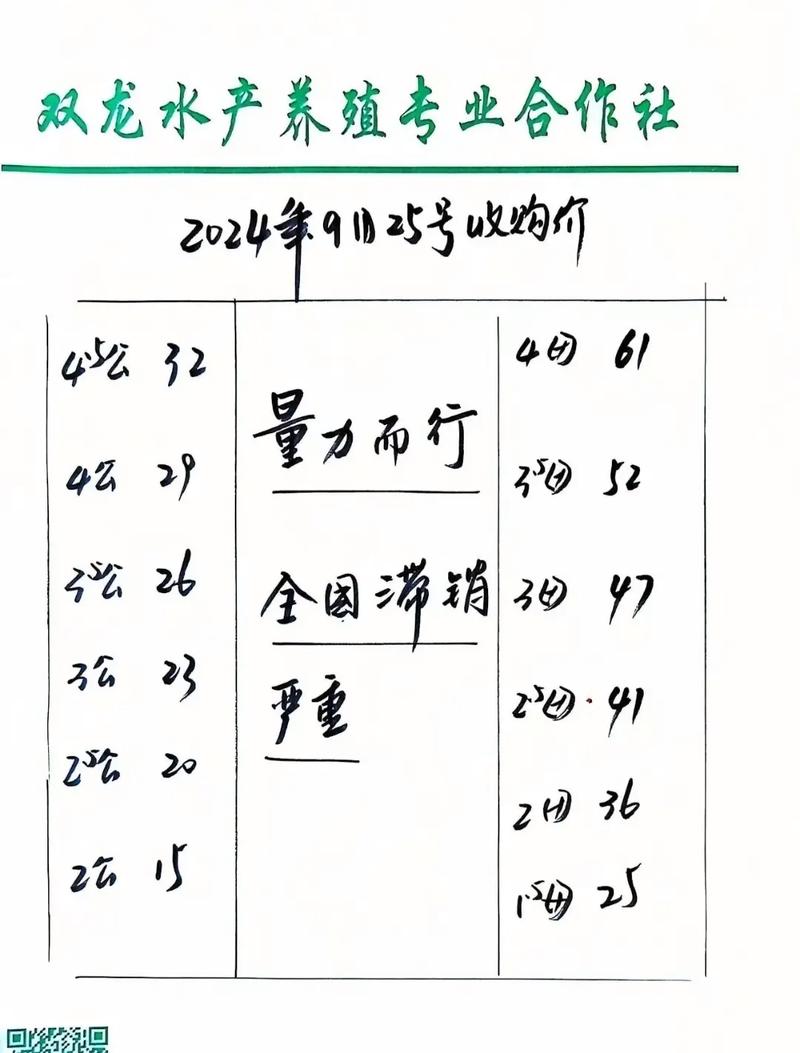 双龙水产养殖专业合作社
2024年9月25号收购价
4.5公 32
4公 29
3.5公 26
3公 23
2.5公 20
2公 15
量力而行
全国滞销
严重
4母 61
3.5母 52
3母 47
2.5母 41
2母 36
1.5母 25